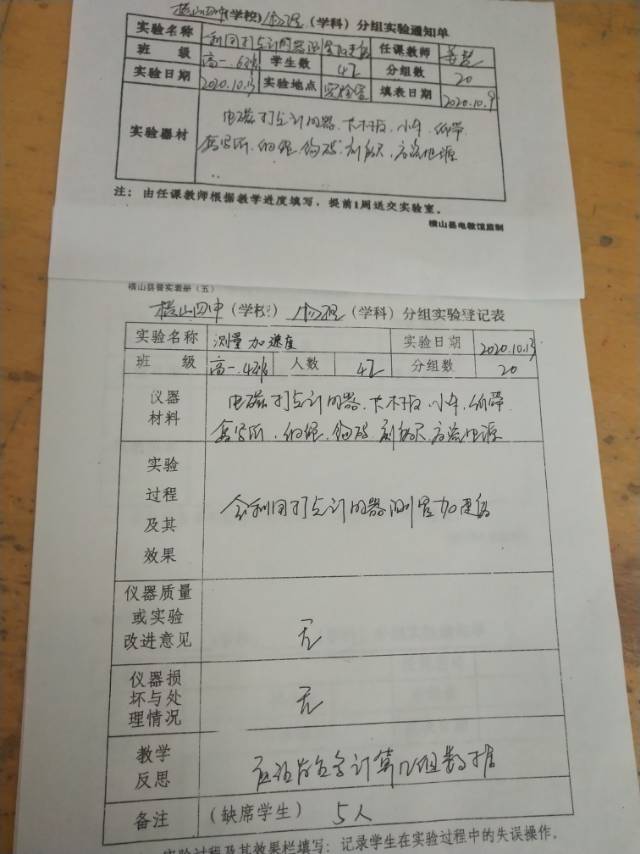 横山四中(学校)物理(学科)分组实验通知单
实验名称 利用打点计时器测量加速度 任课教师
班 级 高一. 学生数 42 分组数 20
实验日期 2020.10.13 实验地点 实验室 填表日期 2020.10.9
实验器材 电磁打点计时器.长木板.小车.纸带
复写纸.细绳.钩码.刻度尺.交流电源
注：由任课教师根据教学进度填写，提前1周送交实验室。
横山县电教馆监制
横山县普实表册（五）
横山四中（学校）物理（学科）分组实验登记表
实验名称 测量加速度 实验日期 2020.10.13
班 级 高一. 人数 42 分组数 20
仪器材料 电磁打点计时器.长木板.小车.纸带
复写纸.细绳.钩码.刻度尺.交流电源
实验
过程
及其
效果
会利用打点计时器测量加速度
仪器质量
或实验
改进意见
无
仪器损
坏与处
理情况
无
教学
反思
应该 多计算几组数据
备注 (缺席学生) 5人
实验过程及其效果栏填写：记录学生在实验过程中的失误操作。